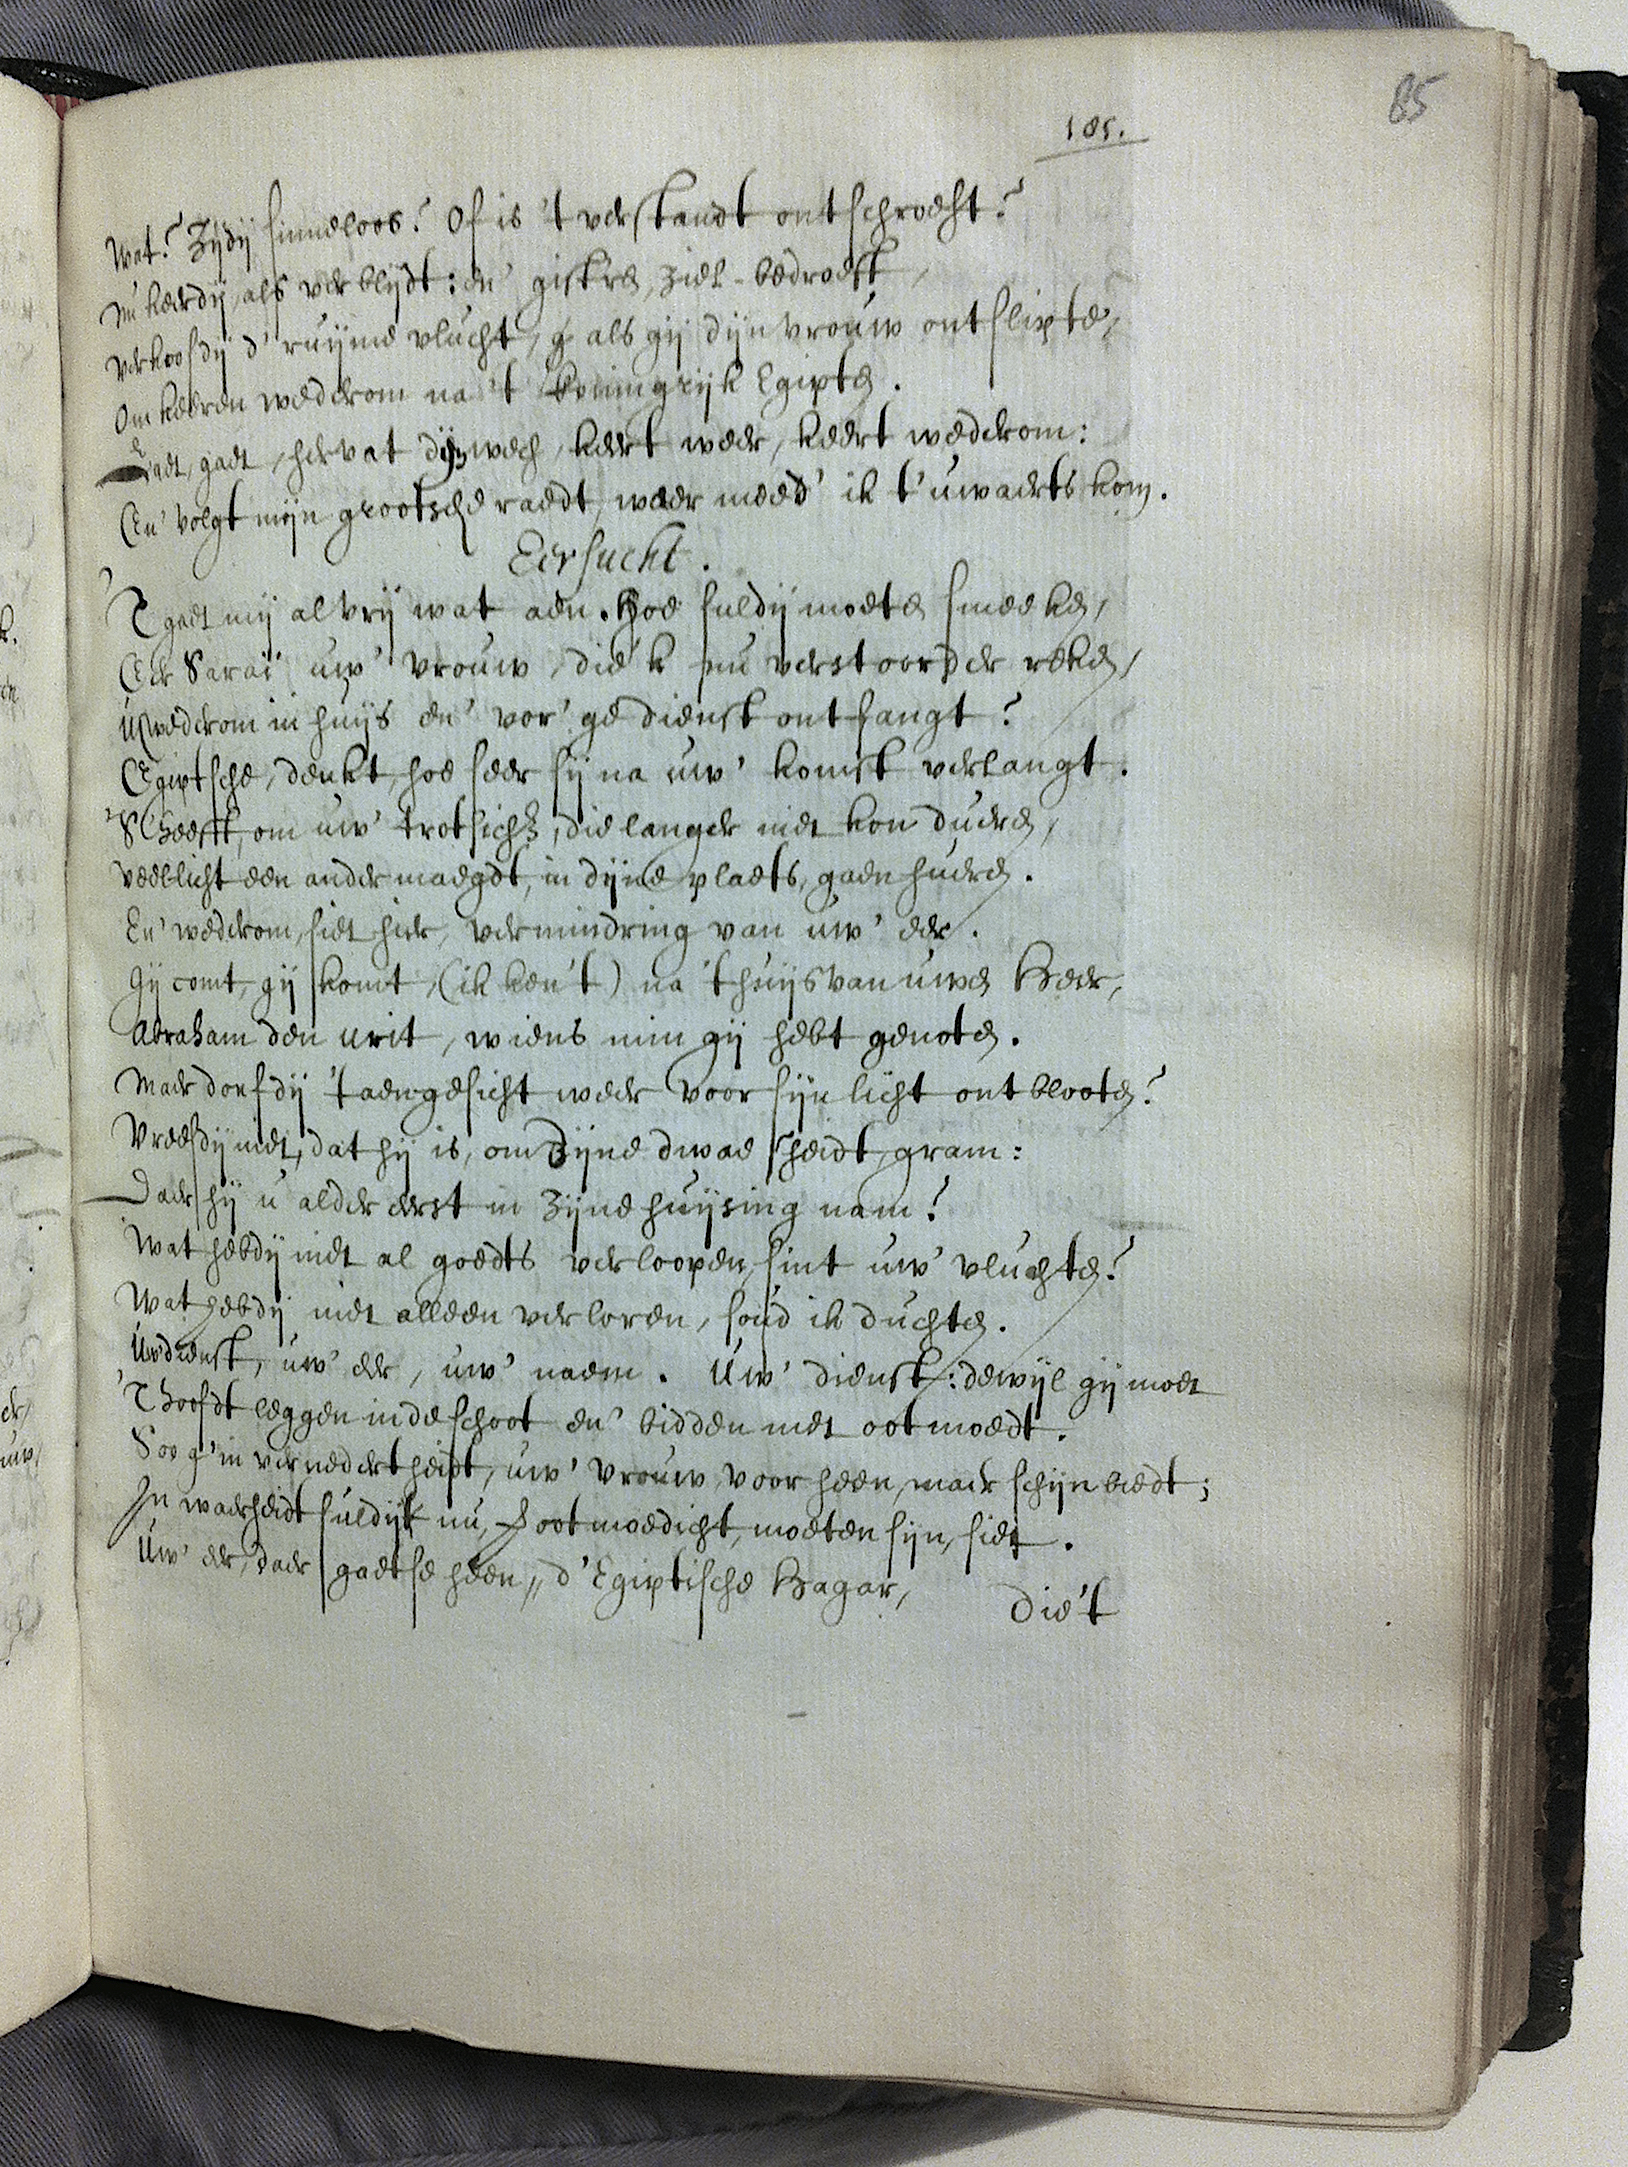 85
185.
Wat? Zijdij sinneloos? Of is 't verstandt ontschroeft?
Nu keerdij, als verblijdt: en' gistren, ziel-bedroeft,
Verkoosdij d' ruijme vlucht, als gij dijn vrouw ontslipte,
Om keeren wederom na 't koningrijk Egipte.
Gaet, gaet, hervat dijn wech, keert weer, keert wederom:
En' volgt mijn grootsche raedt, waer meed' ik t' uwaerts kom.
Eersucht.
'T gaet mij al vrij wat aen. Hoe suldij moeten smeeken,
Eer Sarai uw' vrouw, die 'k nu verstoorder reken,
U wederom in huijs en' vor'ge dienst ontfangt?
Egiptsche, denkt, hoe seer sij na uw' komst verlangt.
'S Heeft, om uw' trotsicht, die langer niet kon dueren,
Veellicht een ander maegdt, in dijne plaets, gaen hueren.
En' wederom, siet hier, vermindring van uw' eer.
Gij comt, gij komt, (ik ken 't) na 't huijs van uwen Heer,
Abraham den urit, wiens min gij hebt genoten.
Maer dorfdij 't aengesicht weer voor sijn licht ontblooten?
Vreesdij niet, dat hij is, om dijne dwaesheidt, gram:
Daer hij u alder eerst in zijne huijsing nam?
Wat hebdij niet al goedts verloopen, sint uw' vluchten?
Wat hebdij niet alleen verloren, soud ik duchten.
Uw' dienst, uw' eer, uw' naem. Uw' dienst: dewijl gij moet
'T hooft leggen in de schoot en' bidden met ootmoedt.
Soo g' in vernedertheidt, uw' vrouw, voor heen, maer schijn biedt;
In waerheidt suldijt nu, ootmoedicht, moeten sijn, siet.
Uw' eer, daer gaetse heen, d' Egiptische Hagar,
Die 't